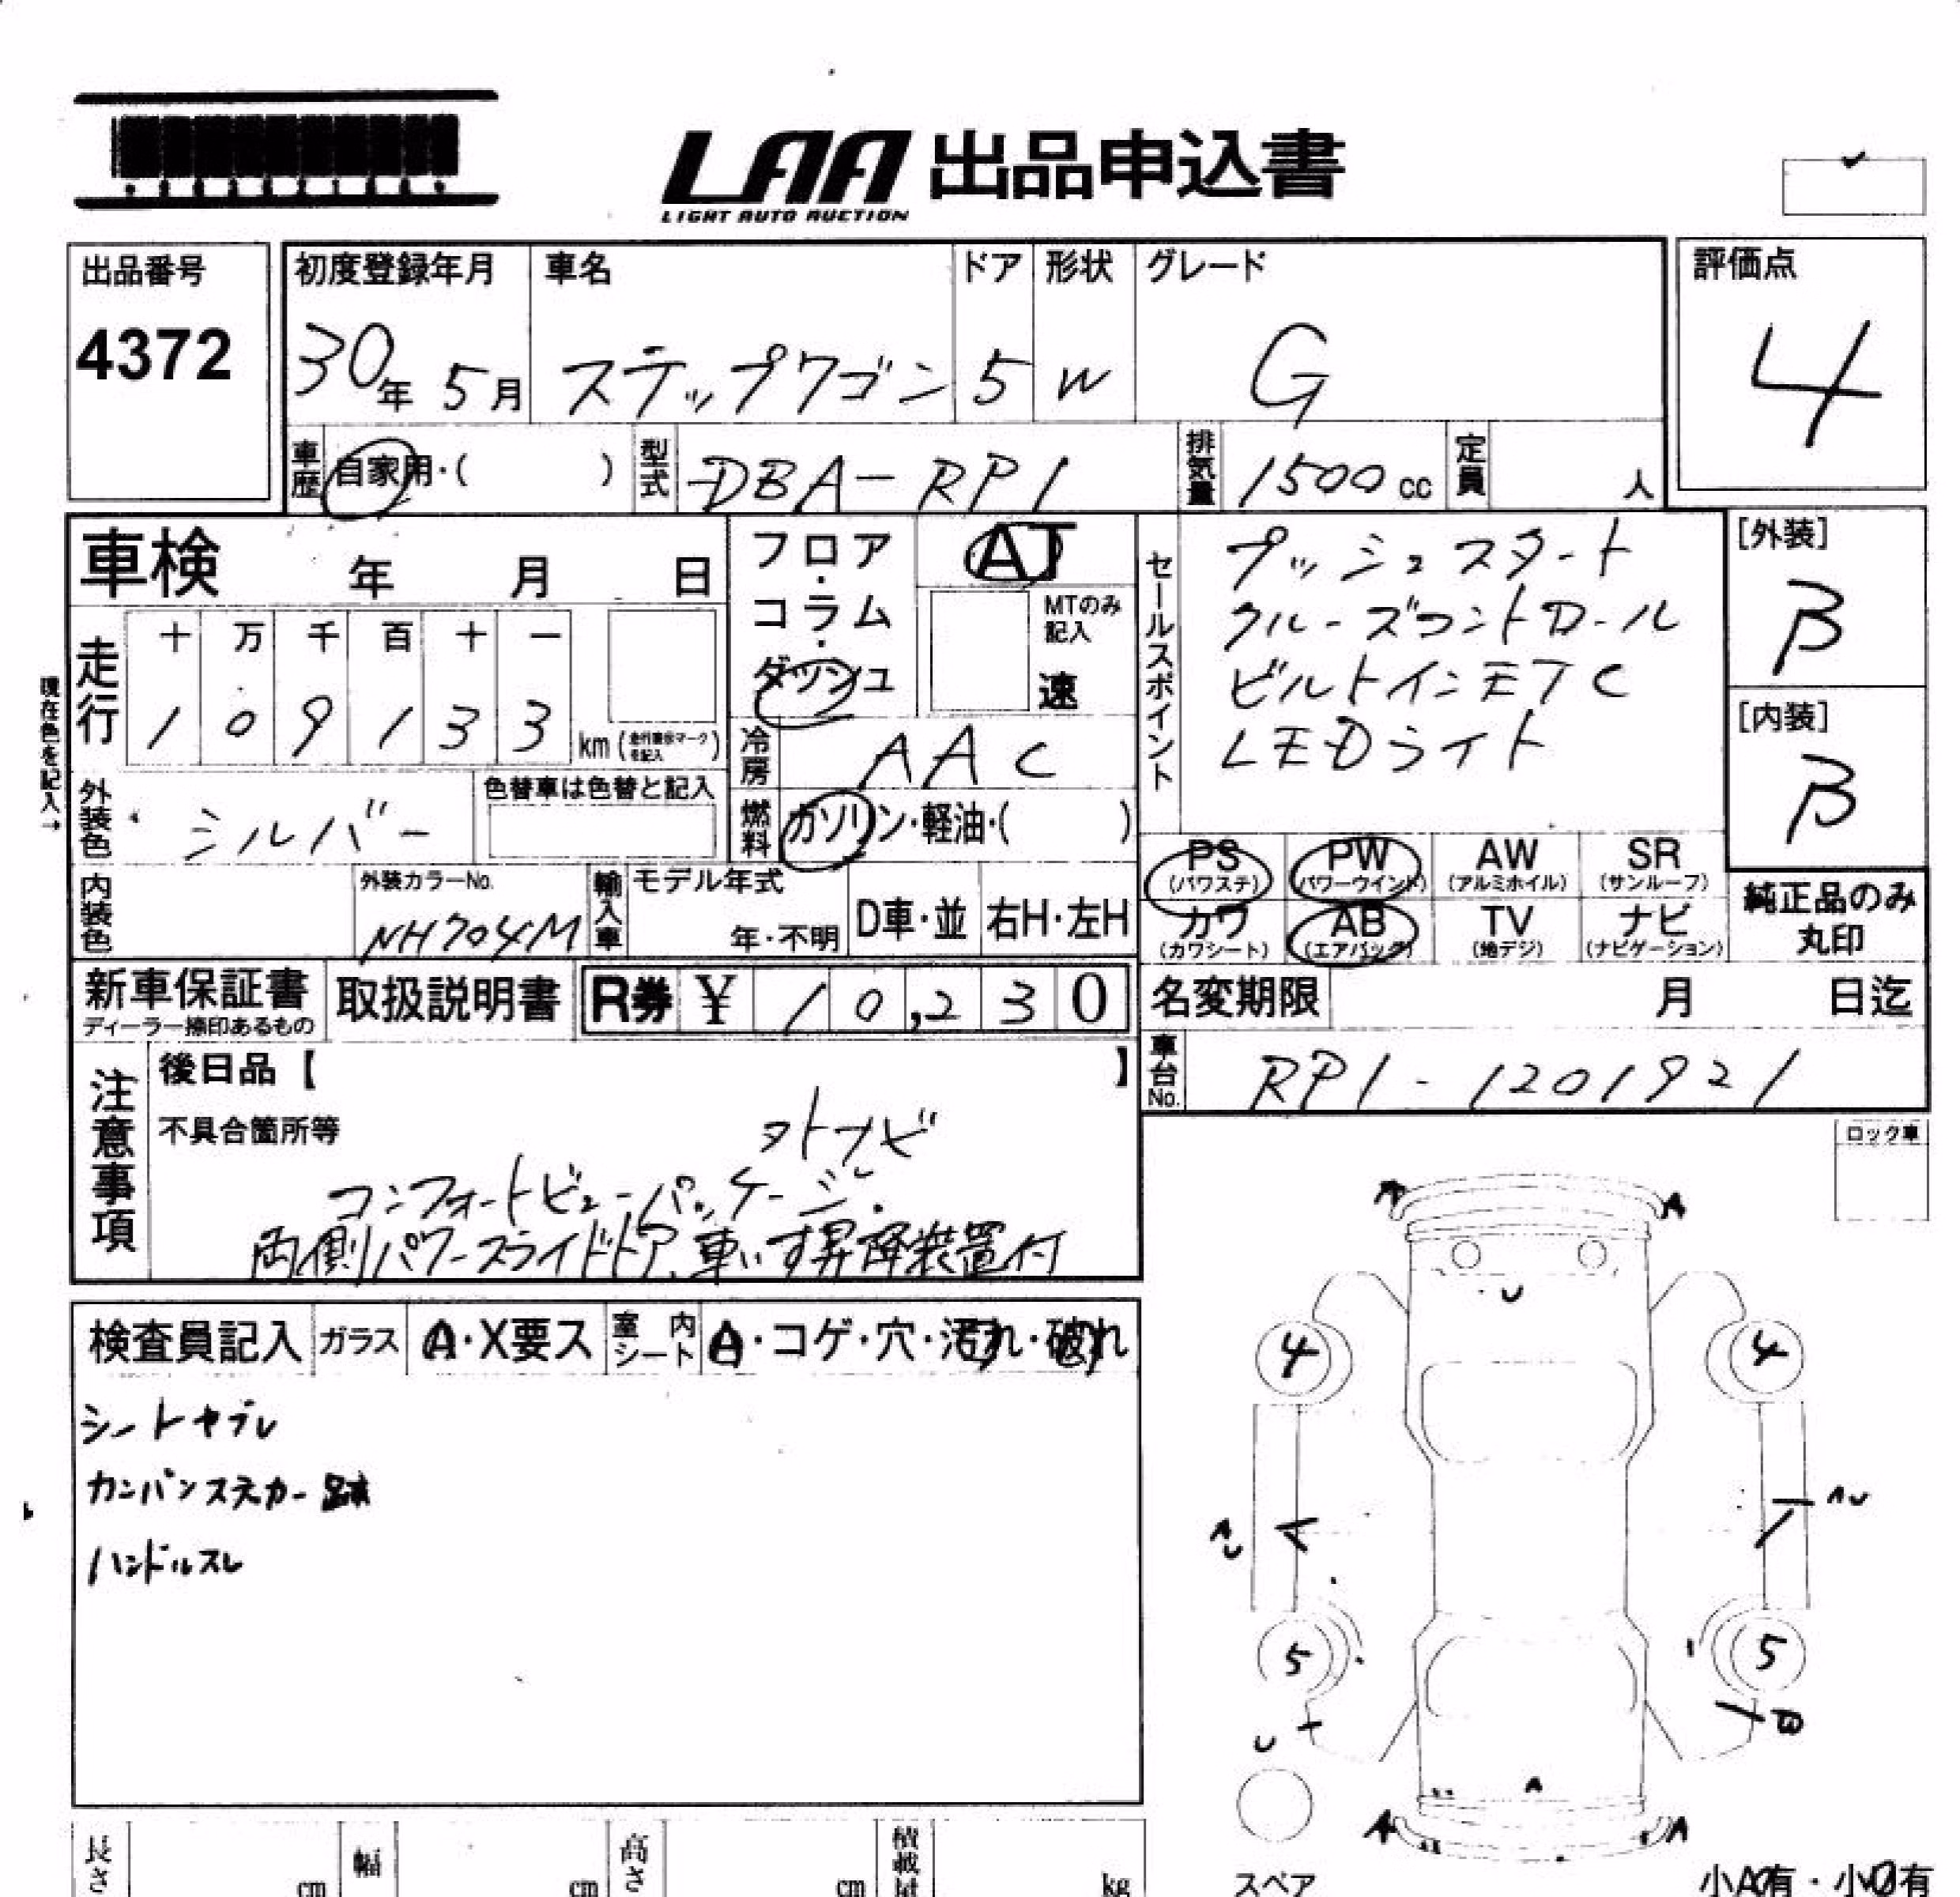 LAA 出品申込書
LIGHT AUTO AUCTION
出品番号
4372
初度登録年月
30年 5月
車名
ステップワゴン
ドア
5
形状
W
グレード
G
評価点
4
車歴
自家用・( )
型式
DBA-RP1
排気量
1500 cc
定員
人
車検 年 月 日
走行
十 万 千 百 十 一
1 0 9 1 3 3
km
現在色を記入→
外装色
シルバー
色替車は色替と記入
内装色
外装カラーNo.
NH704M
フロア・コラム・ダッシュ
AT
MTのみ記入
速
冷房
AAC
燃料
ガソリン・軽油・( )
輸入車
モデル年式
年・不明
D車・並
右H・左H
セールスポイント
プッシュスタート
クルーズコントロール
ビルトインETC
LEDライト
[外装]
B
[内装]
B
PS
(パワステ)
PW
(パワーウインド)
AW
(アルミホイル)
SR
(サンルーフ)
カワ
(カワシート)
AB
(エアバッグ)
TV
(地デジ)
ナビ
(ナビゲーション)
純正品のみ
丸印
新車保証書
ディーラー捺印あるもの
取扱説明書
R券 ¥ 10,230
名変期限 月 日迄
車台No.
RP1-1201921
注意事項
後日品【 】
不具合箇所等
外ナビ
コンフォートビューパッケージ.
両側パワースライドドア、車いす昇降装置付
ロック車
検査員記入
ガラス
A・X要ス
室内シート
A・コゲ・穴・汚れ・破れ
シートヤブレ
カンバンステカー跡
ハンドルスレ
A A
U
4 4
5 5
U
A
A A
スペア
小A有・小U有
長さ cm
幅 cm
高さ cm
積載量 kg